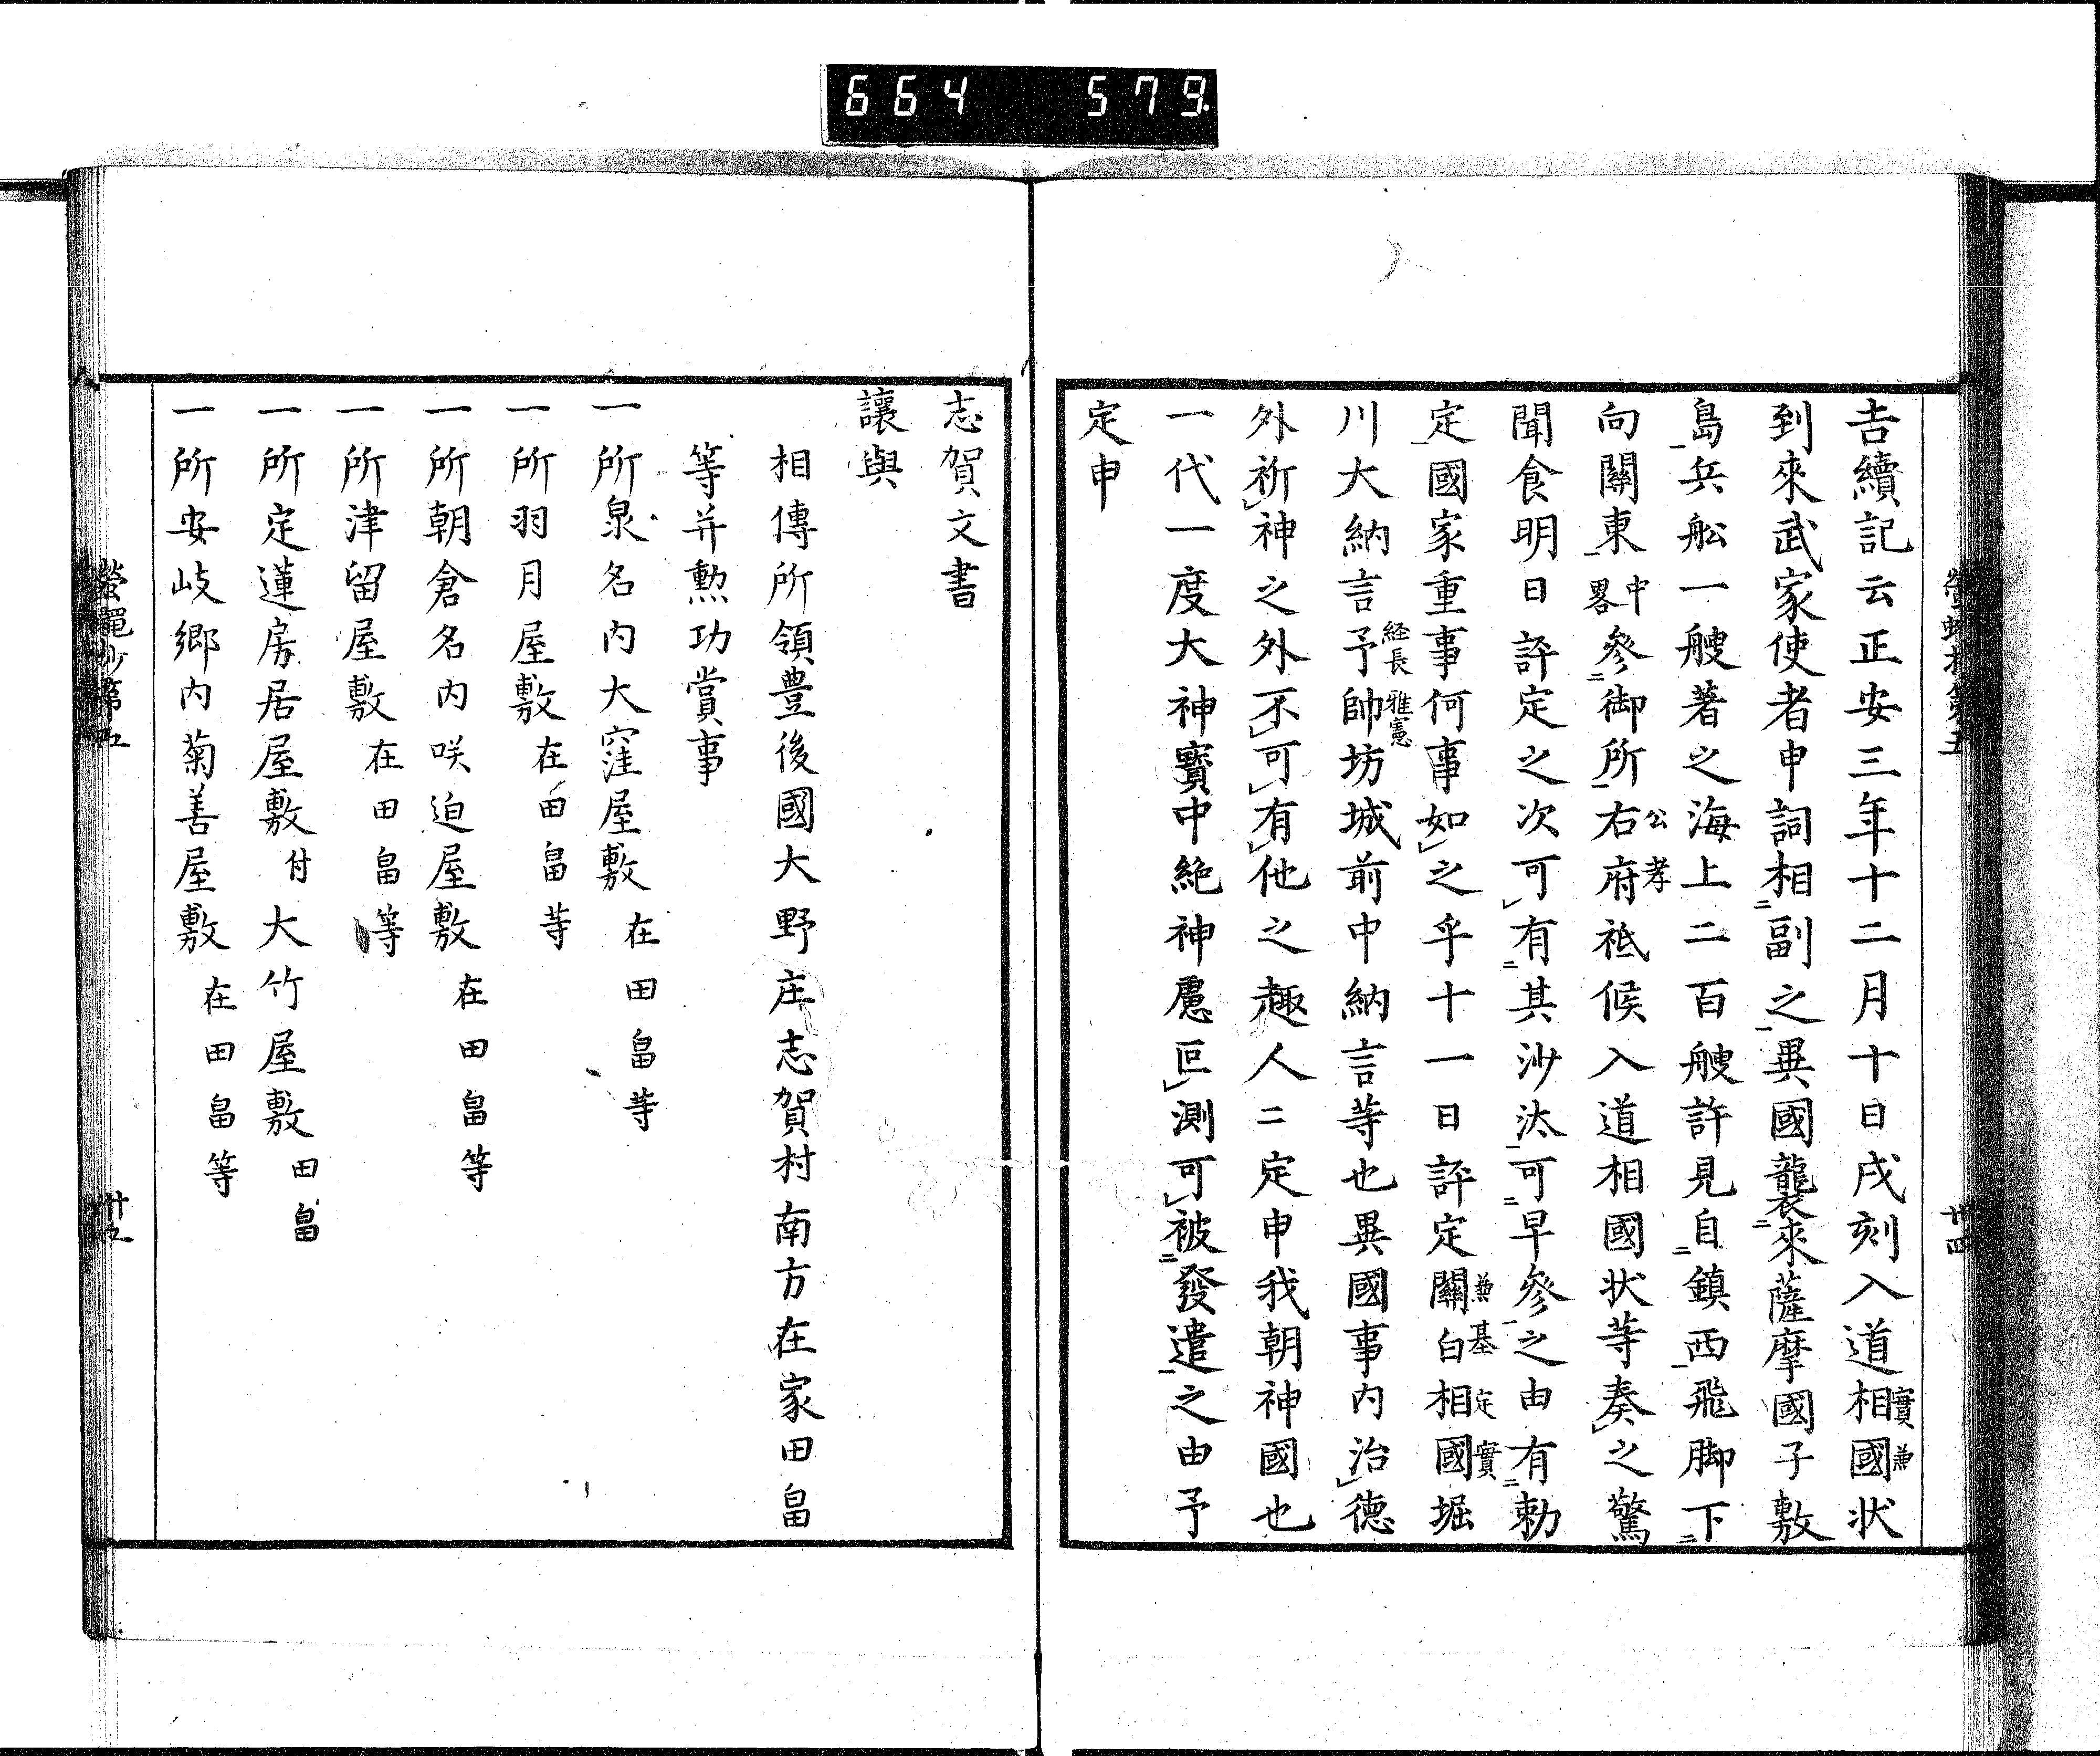 664 579
吉續記云正安三年十二月十日戌刻入道相國實兼状
到來武家使者申詞相副之異國襲來薩摩國子敷
島兵舩一艘著之海上二百艘許見自鎮西飛脚下
向關東中畧參御所右府公孝祗候入道相國状等奏之驚
聞食明日評定之次可有其沙汰可早參之由有勅
定國家重事何事如之乎十一日評定關白兼基相國定實堀
川大納言予経長帥雅憲坊城前中納言等也異國事内治德
外祈神之外不可有他之趣人ニ定申我朝神國也
一代一度大神寳中絶神慮叵測可被發遣之由予
定申
志賀文書
讓與
相傳所領豊後國大野庄志賀村南方在家田畠
等并勲功賞事
一所泉名内大窪屋敷在田畠等
一所羽月屋敷在田畠等
一所朝倉名内咲迫屋敷在田畠等
一所津留屋敷在田畠等
一所定蓮房居屋敷付大竹屋敷田畠
一所安岐郷内菊善屋敷在田畠等